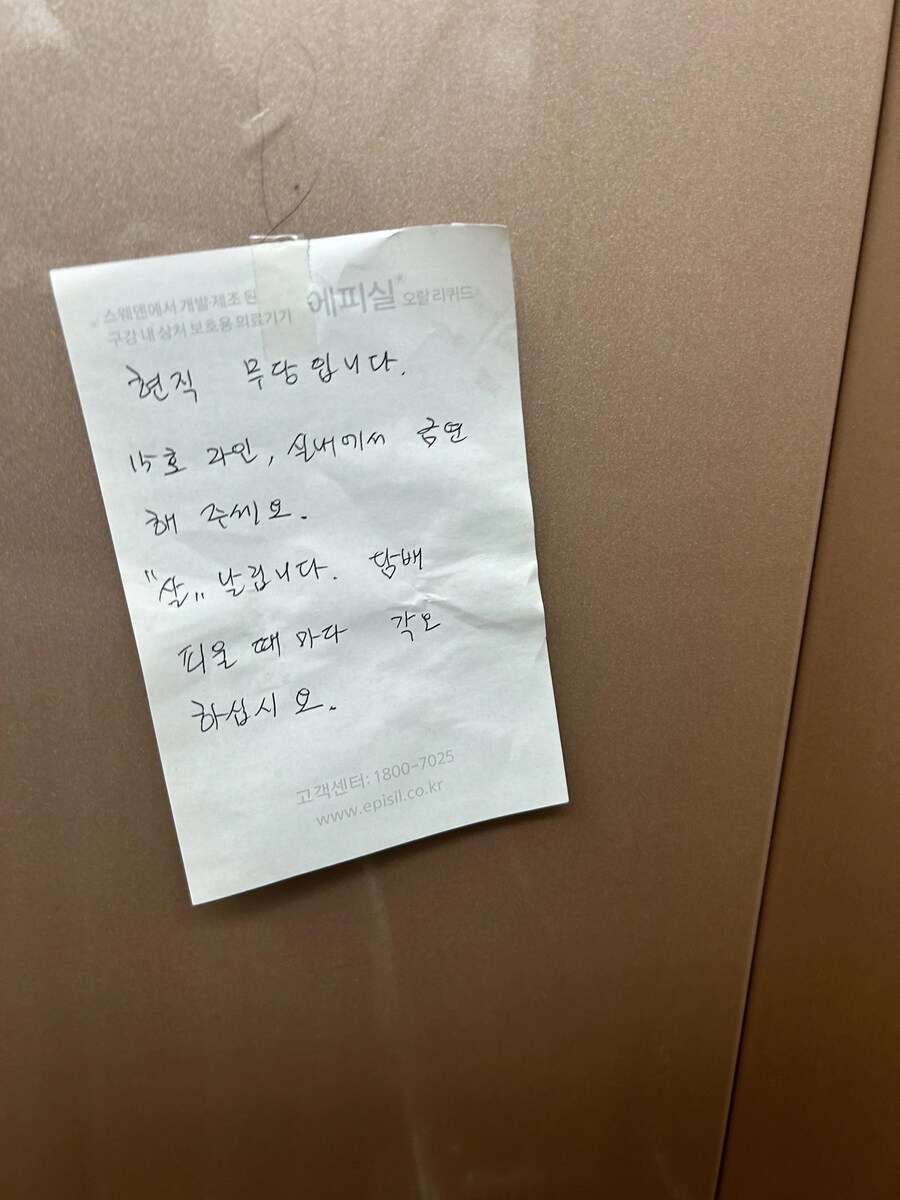 스웨덴에서 개발·제조된
구강 내 상처 보호용 의료기기
에피실® 오랄 리퀴드
현직 무당입니다.
15호 라인, 실내에서 금연
해 주세요.
"살" 날립니다. 담배
피울 때 마다 각오
하십시오.
고객센터: 1800-7025
www.episil.co.kr